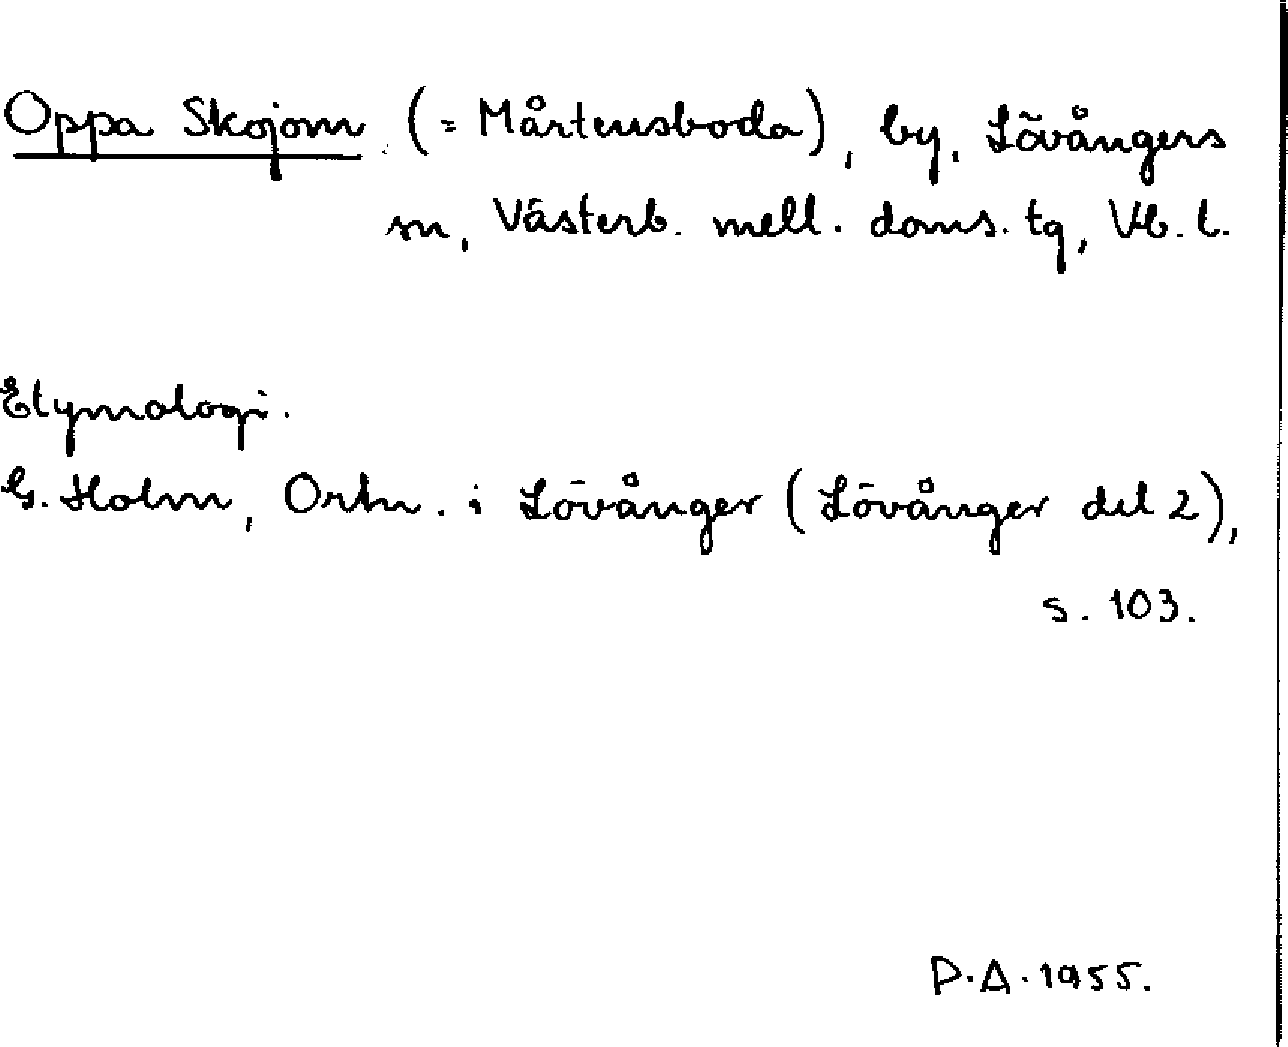 Oppa Skojom (= Mårtensboda), by, Lövångers
sn, Västerb. mell. doms. tg, Vb. l.
Etymologi.
G. Holm, Ortn. i Lövånger (Lövånger del 2),
s. 103.
D.A. 1955.